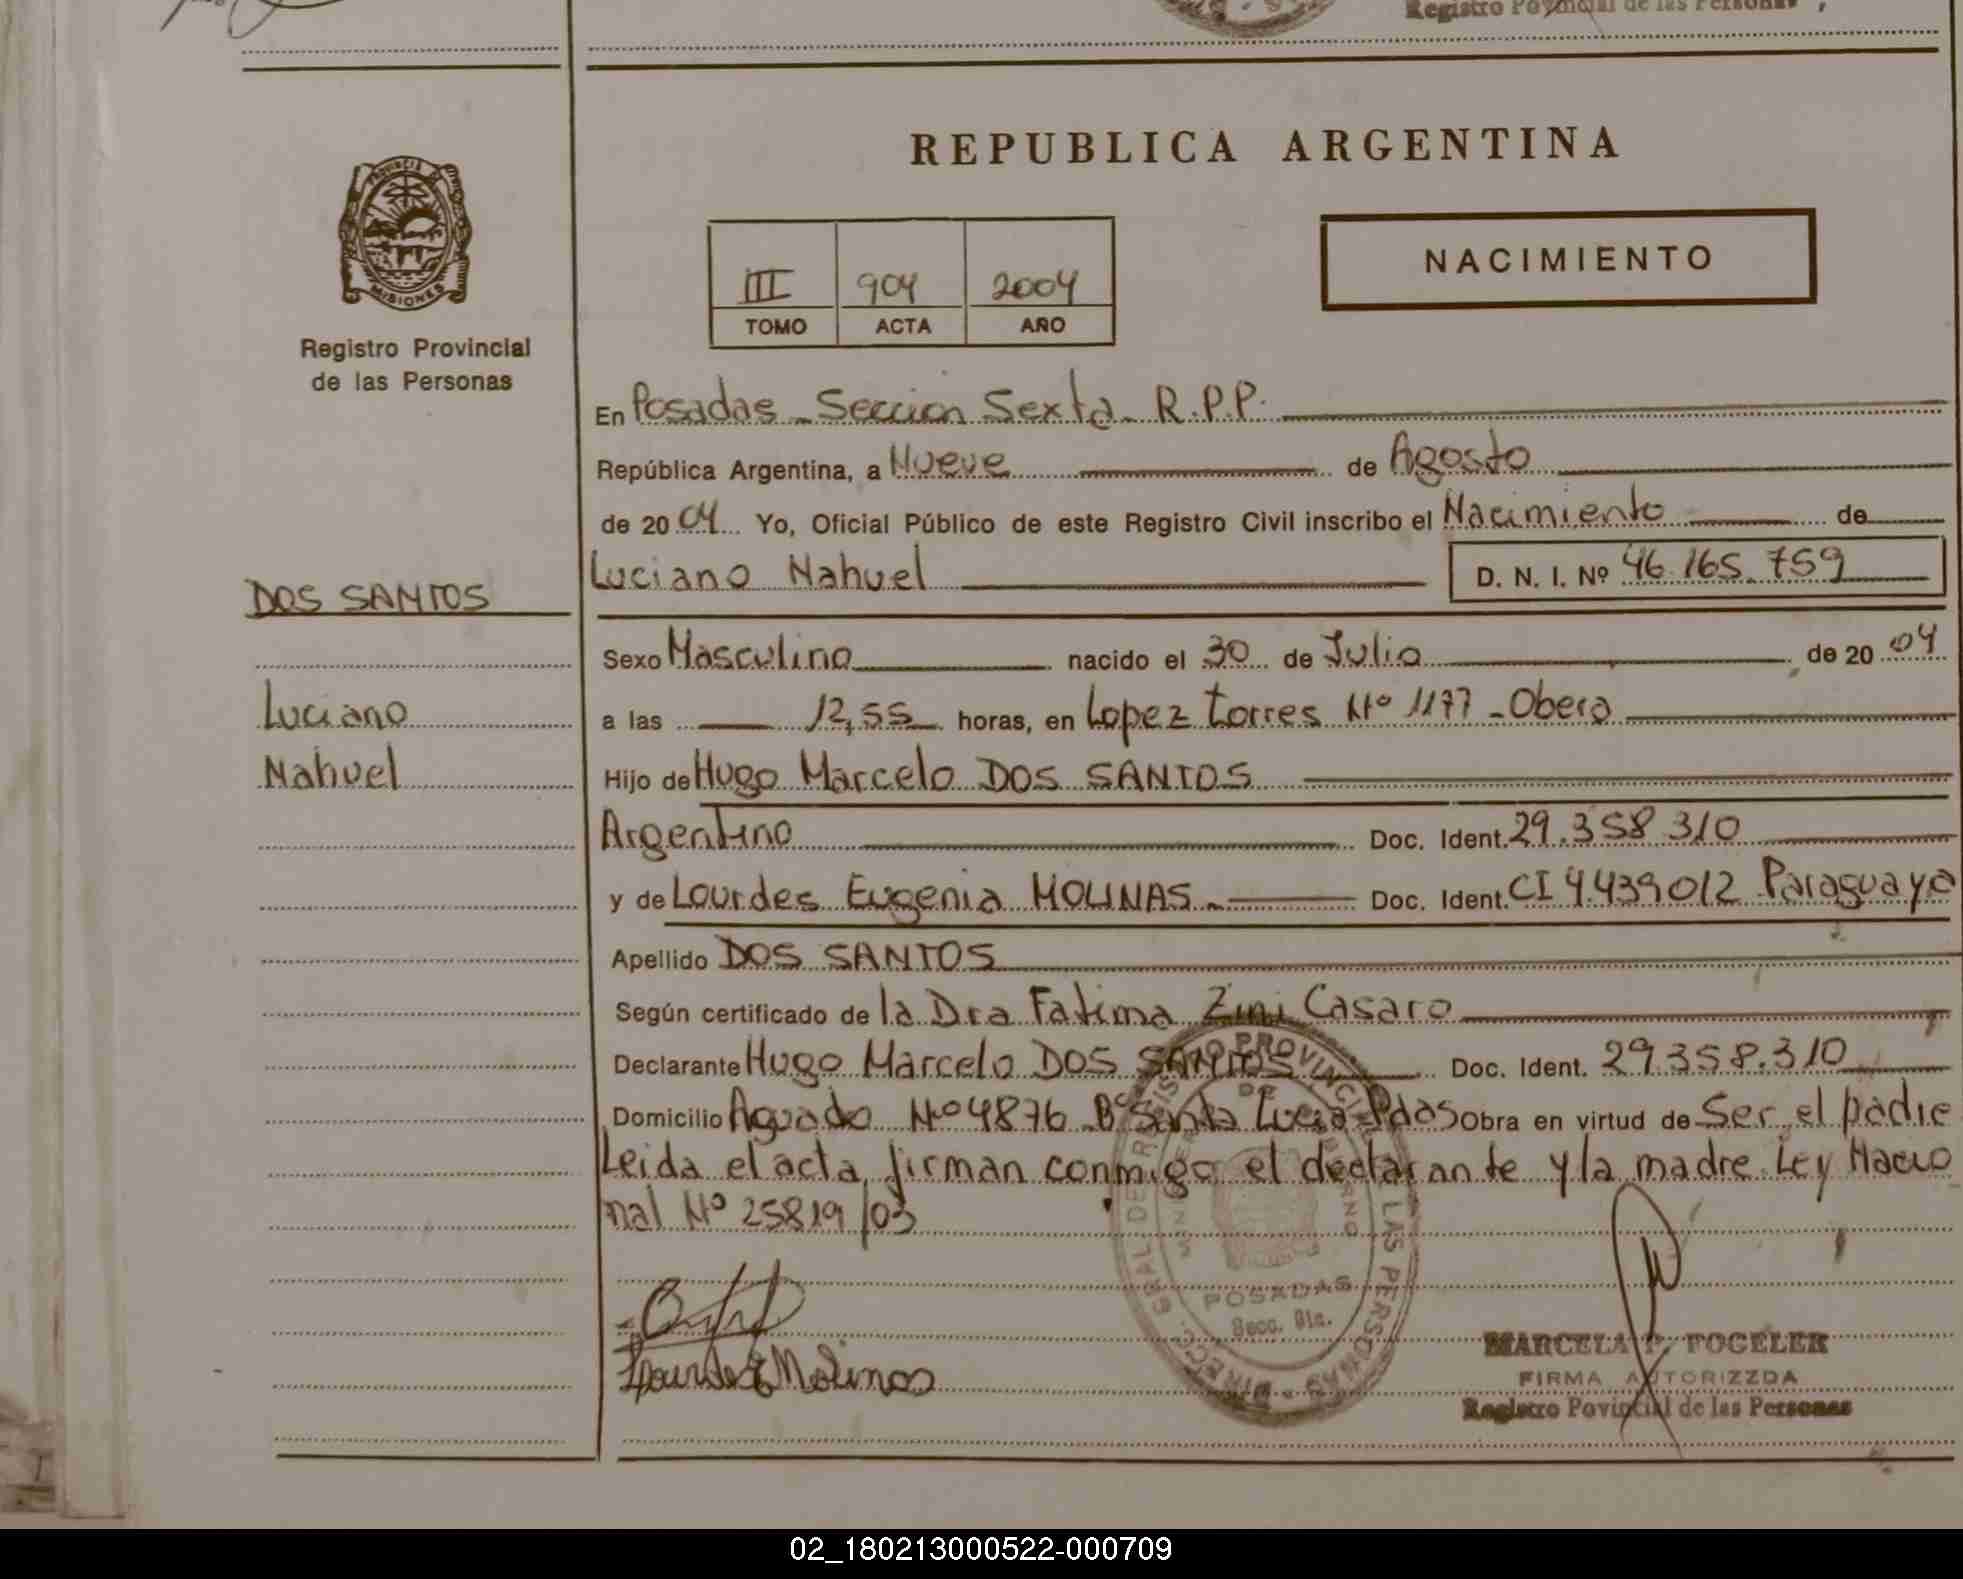 Registro Povincial de las Personas
REPUBLICA ARGENTINA
PROVINCIA DE
MISIONES
Registro Provincial
de las Personas
NACIMIENTO
III 904 2004
TOMO ACTA AÑO
En Posadas - Seccion Sexta - R.P.P.
República Argentina, a Nueve de Agosto
de 2004 Yo, Oficial Público de este Registro Civil inscribo el Nacimiento de
Luciano Nahuel D. N. I. Nº 46.165.759
DOS SANTOS
Sexo Masculino nacido el 30 de Julio de 2004
Luciano
a las 12,55 horas, en Lopez Torres Nº 1177 - Obera
Nahuel
Hijo de Hugo Marcelo DOS SANTOS
Argentino Doc. Ident. 29.358.310
y de Lourdes Eugenia MOLINAS - Doc. Ident. CI 4.439012 Paraguaya
Apellido DOS SANTOS
Según certificado de la Dra Fatima Zini Casaro
Declarante Hugo Marcelo DOS SANTOS Doc. Ident. 29.358.310
Domicilio Aguado Nº 4876 Bº Santa Lucia Pdas Obra en virtud de Ser el padre
Leida el acta, firman conmigo el declarante y la madre. Ley Nacio
nal Nº 25819/03
POSADAS
Secc. 6ta.
Lourdes E Molinas
MARCELA P. FOGELER
FIRMA AUTORIZZDA
Registro Povincial de las Personas
02_180213000522-000709